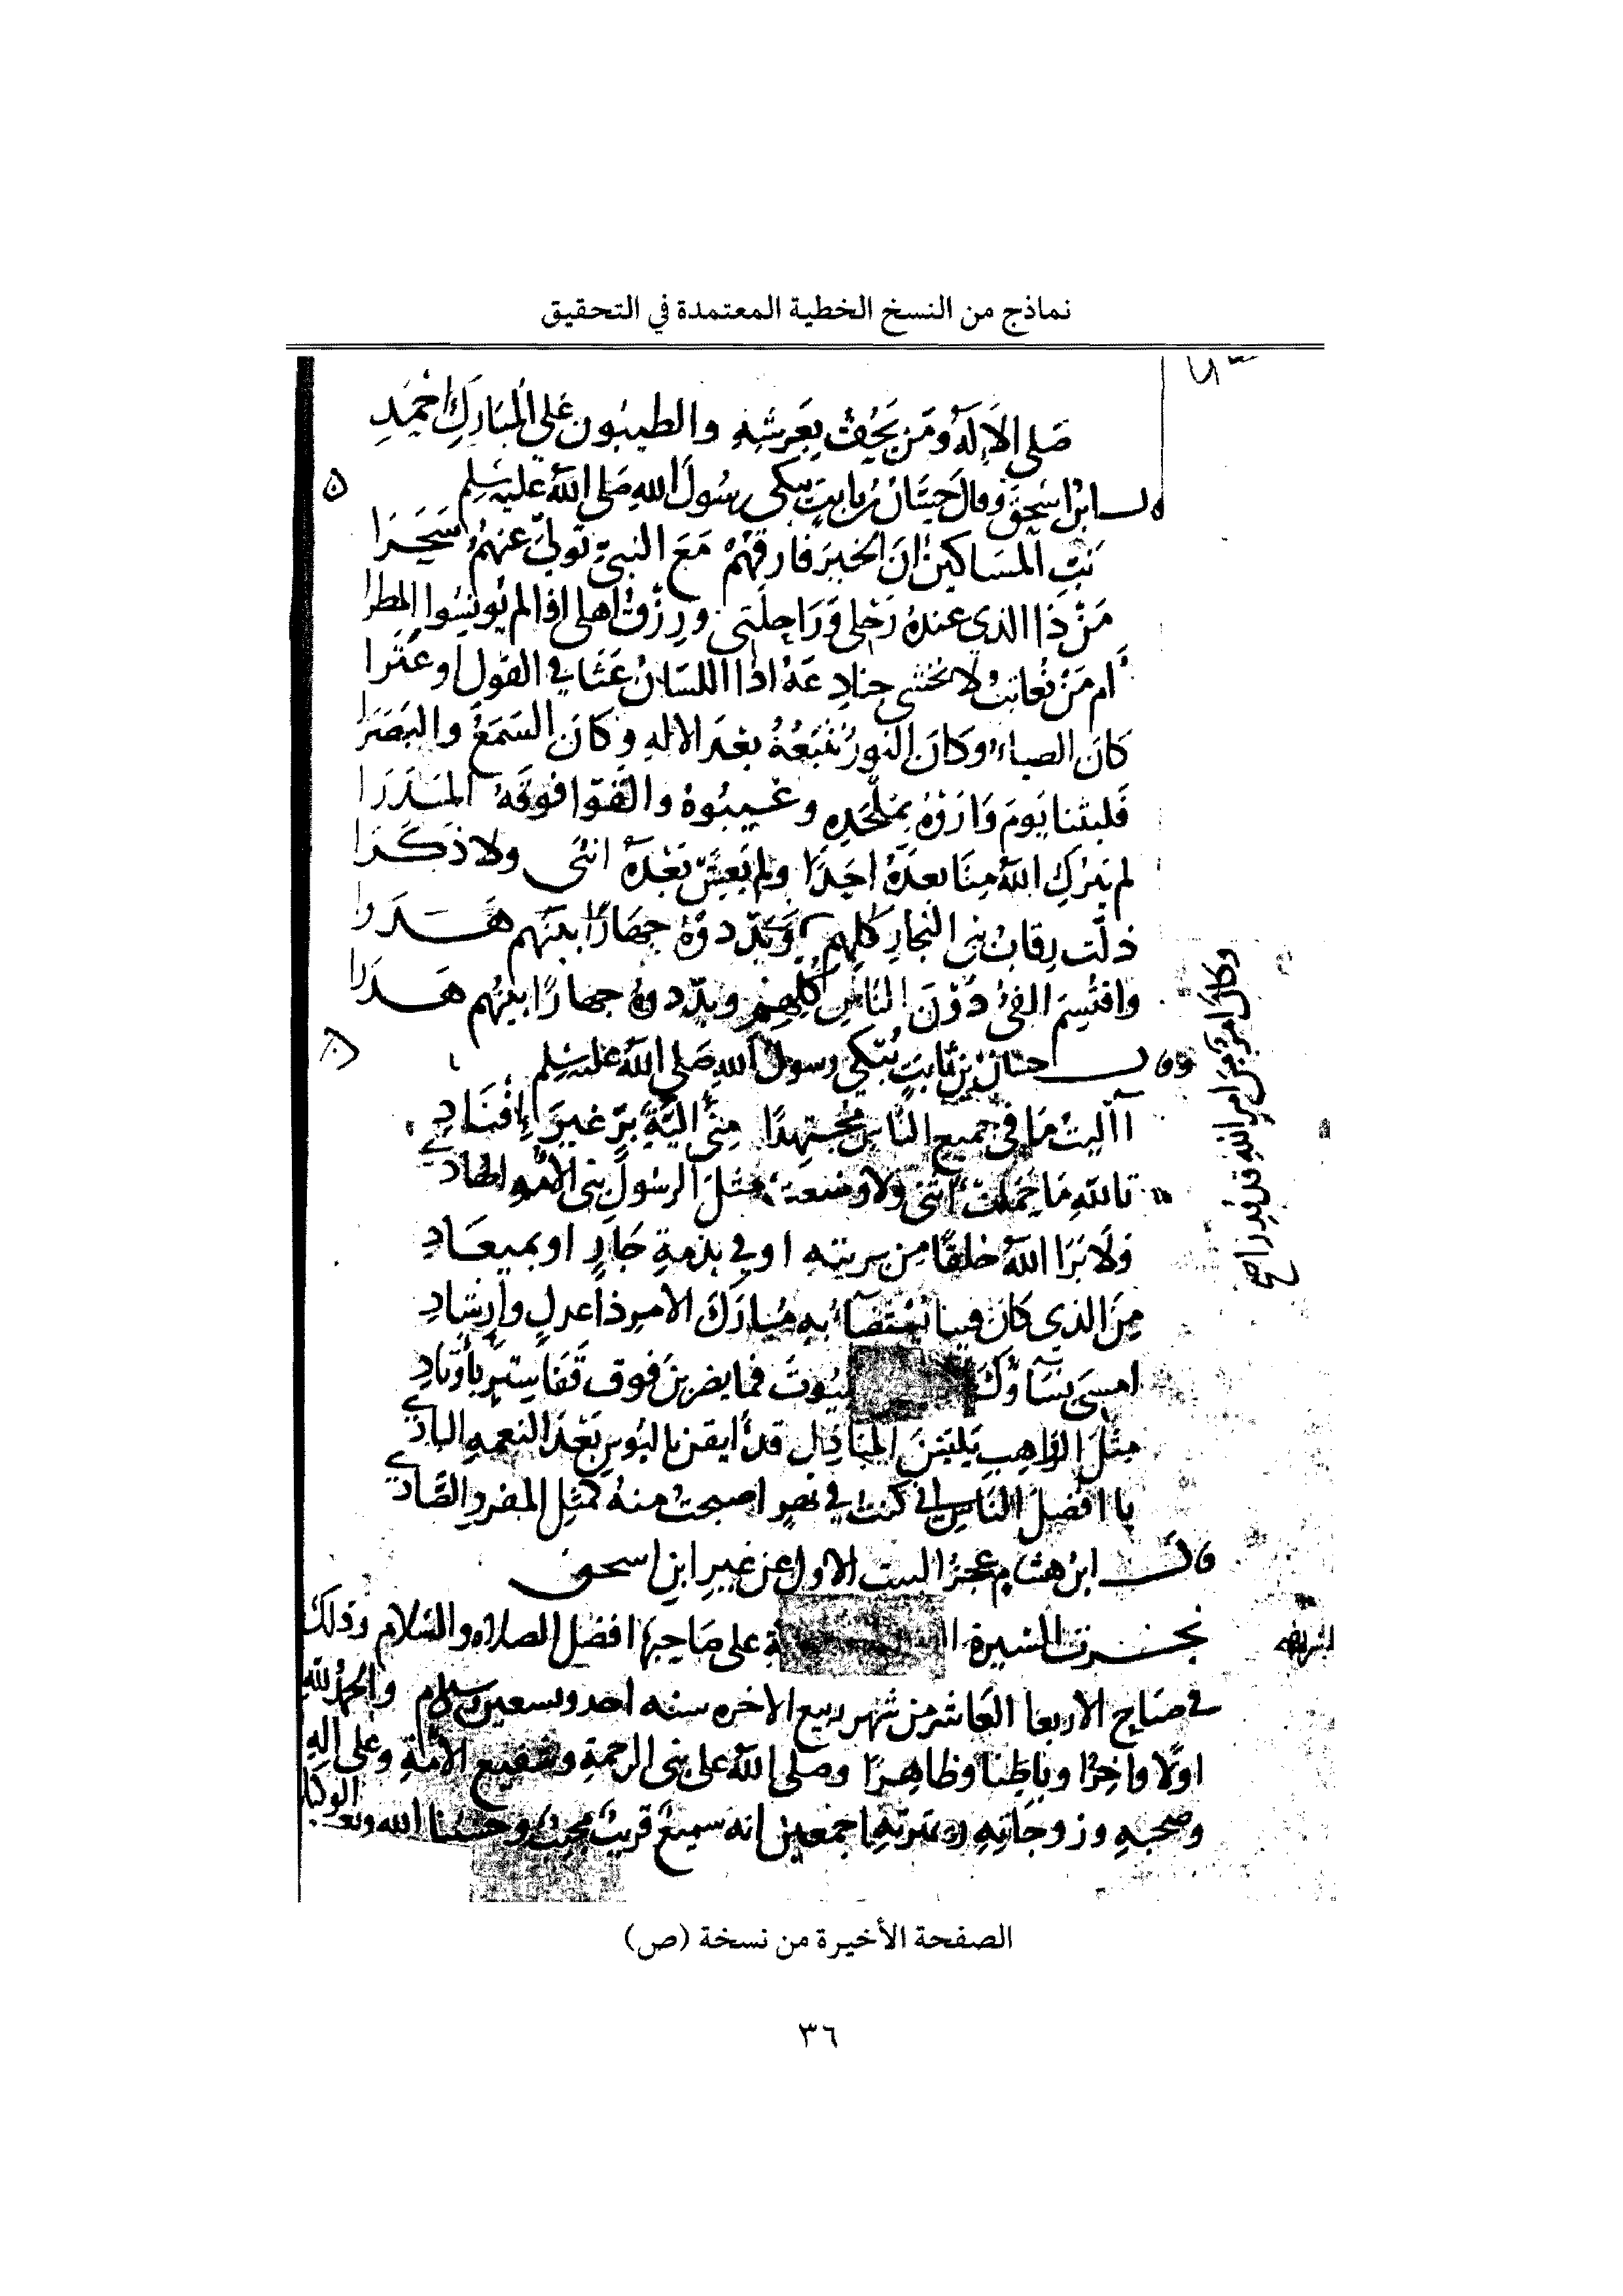 نماذج من النسخ الخطية المعتمدة في التحقيق
صَلى الالَهُ ومَن يَحُفُّ بِعَرشِهِ والطيبُون عَلى المُبَارَكِ احْمَدِ
قال ابن اسحق وقال حسّان بن ثابت يبكى رسُول الله صَلى اللهُ عليه وسَلم
نَبِّ المسَاكينَ انَ الخيرَ فارقهُمْ مَعَ النبيّ تولى عنهُمُ سَحَرَا
مَنْ ذا الذي عندهُ رَحْلى وَرَاحِلَتى ورِزْقُ اهلى اذا لم يُونسُوا المطرا
ام مَنْ نعاتبُ لا نخشى جنادِعَهُ اذا اللسَانُ عَتَا في القول او عَثَرا
كانَ الضياءَ وكانَ النورَ نتبَعُهُ بعْدَ الالهِ وكانَ السَمعَ والبَصَرَا
فليتنا يَومَ وَارَوْهُ بمَلحَدِهِ وغيبُوهُ والقَوا فوقهُ المَدَرَا
لم يترُكِ اللهُ منَّا بعدَهُ احَدًا ولم يَعِشْ بَعْدَهُ انثى ولا ذكَرَا
ذلّت رقابُ بنى النجارِ كلهم
واقتُسِمَ الفئُ دُوْنَ الناسِ كُلِهِمِ وبدّدوهُ جهارًا بينهُم هَدَرا
وكان امرا من امر الله قد قدرا صح
وقال حسّان بن ثابت يُبَكى رسولَ اللهِ صَلى اللهُ عليه وسَلم
آليت مَا في جميع الناسِ مُجتهِدًا مِنى اليّةَ بَرّ غيرَ إفنَادِ
تاللهِ مَا حَمَلت انثى ولا وضعت مثلَ الرسُولِ نبى الامّةِ الهادي
ولا بَرَا اللهُ خلقًا من بريتهِ اوفى بذمةِ جَارٍ او بميعَادِ
مِنَ الذي كانَ فينا يُستضَاءُ بهِ مُبارَكَ الامرِ ذا عدلٍ وارشادِ
امسَى نِسَاؤكَ البيُوتَ فما يضربنَ فوق قَفَا سِترٍ بأوتادِ
مِثلَ الرواهِبِ يلبَسْنَ المبَاذِلَ قد ايقنّ بالبُوسِ بَعْدَ النعمةِ البادي
يا افضلَ الناسِ انى كنت في نهرٍ اصبحتُ منهُ كمثلِ المفردِ الصَّادي
قال ابنُ هشام عجزُ البيت الاول عن غيرِ ابنِ اسحق
نجزت السيرة الشريفة على صَاحِبهَا افضَل الصلاه والسَّلام وذلك
في صَبَاحِ الاربعا العَاشر من شهر ربيع الاخره سنه احد وتسعين والحمدُ للهِ
اولًا واخِرًا وباطِنا وظاهِرًا وصلى اللهُ على نبى الرحمةِ وشفيع الامّةِ وعلى الهِ
وصحبهِ وزوجَاتِهِ اجمعين انه سَميعٌ قريبٌ مُجيبٌ وحسبُنا الله ونعم الوكيل
الصفحة الأخيرة من نسخة (ص)
٣٦